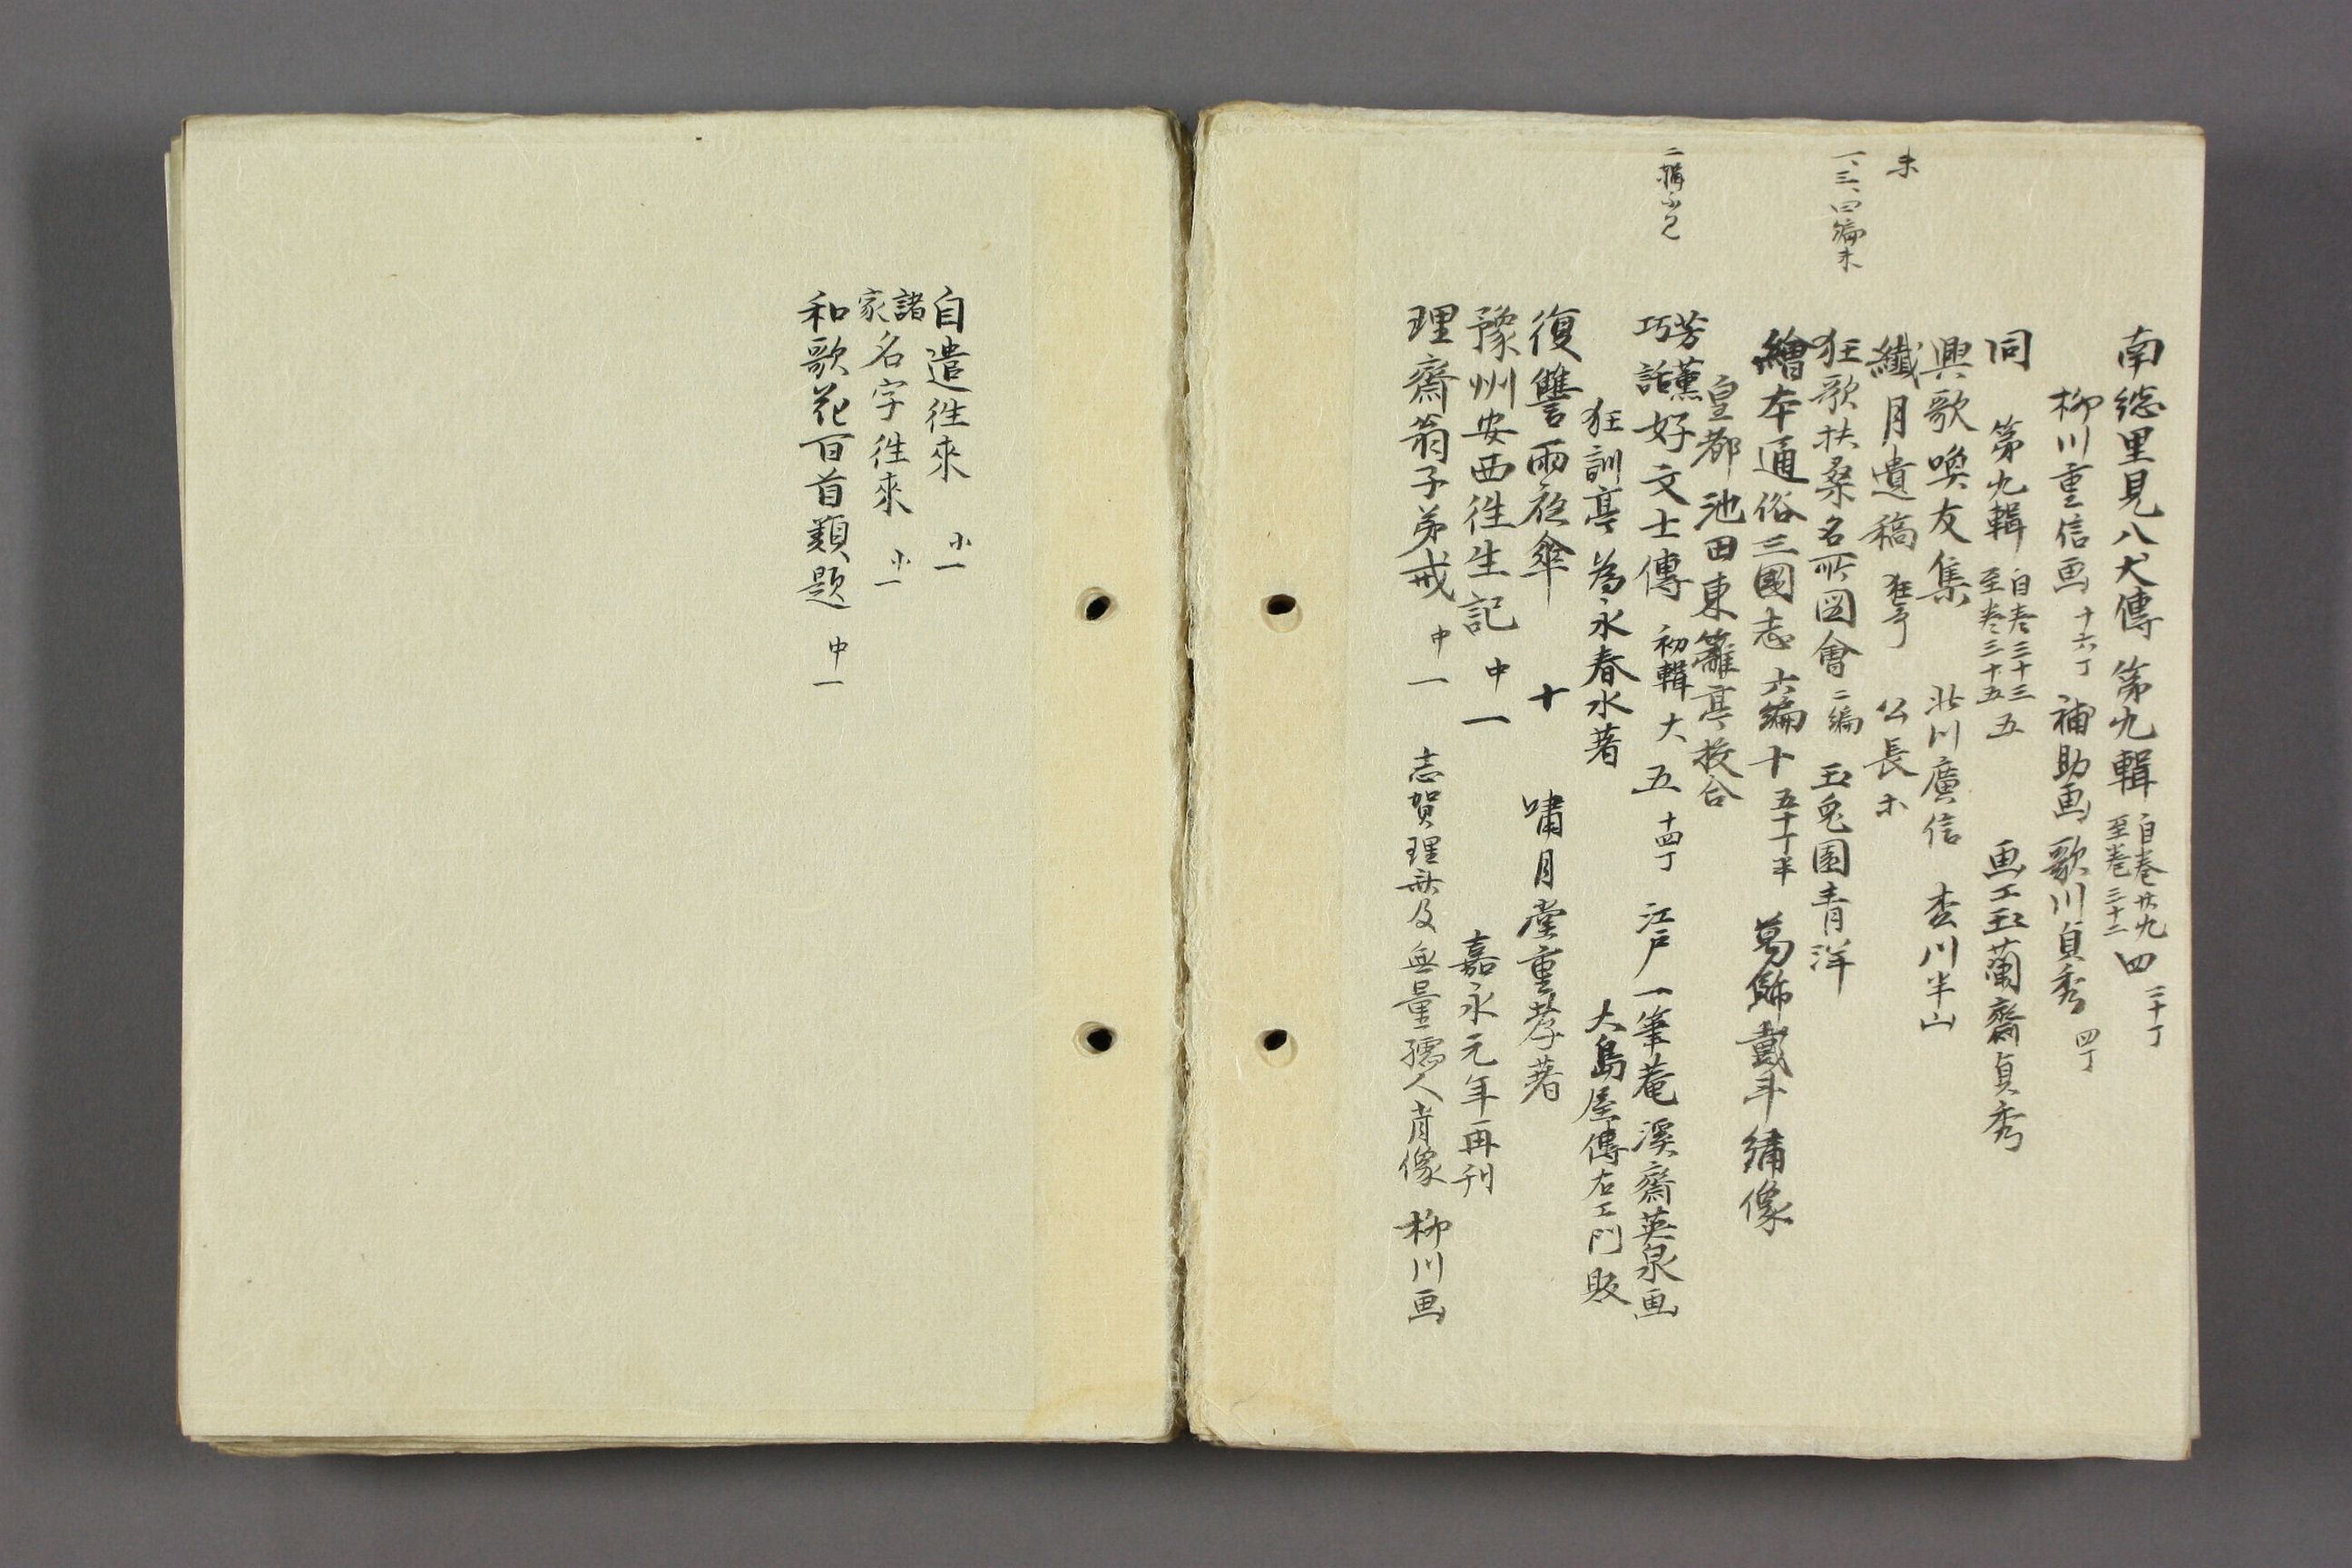 南総里見八犬傳 第九輯 自巻廿九 至巻三十二 四 二十丁
柳川重信画 十六丁 補助画 歌川貞秀 四丁
同 第九輯 自巻三十三 至巻三十五 五 画工玉蘭齋貞秀
興歌喚友集 北川廣信 杏川半山
未
纎月遺稿 公長ホ
一、三、四編未
狂歌扶桑名所図會 二編 玉兎園青洋
繪本通俗三國志 六編 十 五十丁半 葛飾戴斗繍像
皇都池田東籬亭挍合
二輯ゟ見
芳薫 巧話 好文士傳 初輯 大 五 十四丁 江戸一筆菴溪齋英泉画
狂訓亭為永春水著 大島屋傳右エ門販
復讐雨夜傘 十 嘯月堂重孝著
豫州安西徃生記 中一 嘉永元年再刊
理齋翁子弟戒 中一 志賀理齋及無量孺人肖像 柳川画
自遣徃來 小一
諸家名字徃來 小一
和歌花百首類題 中一